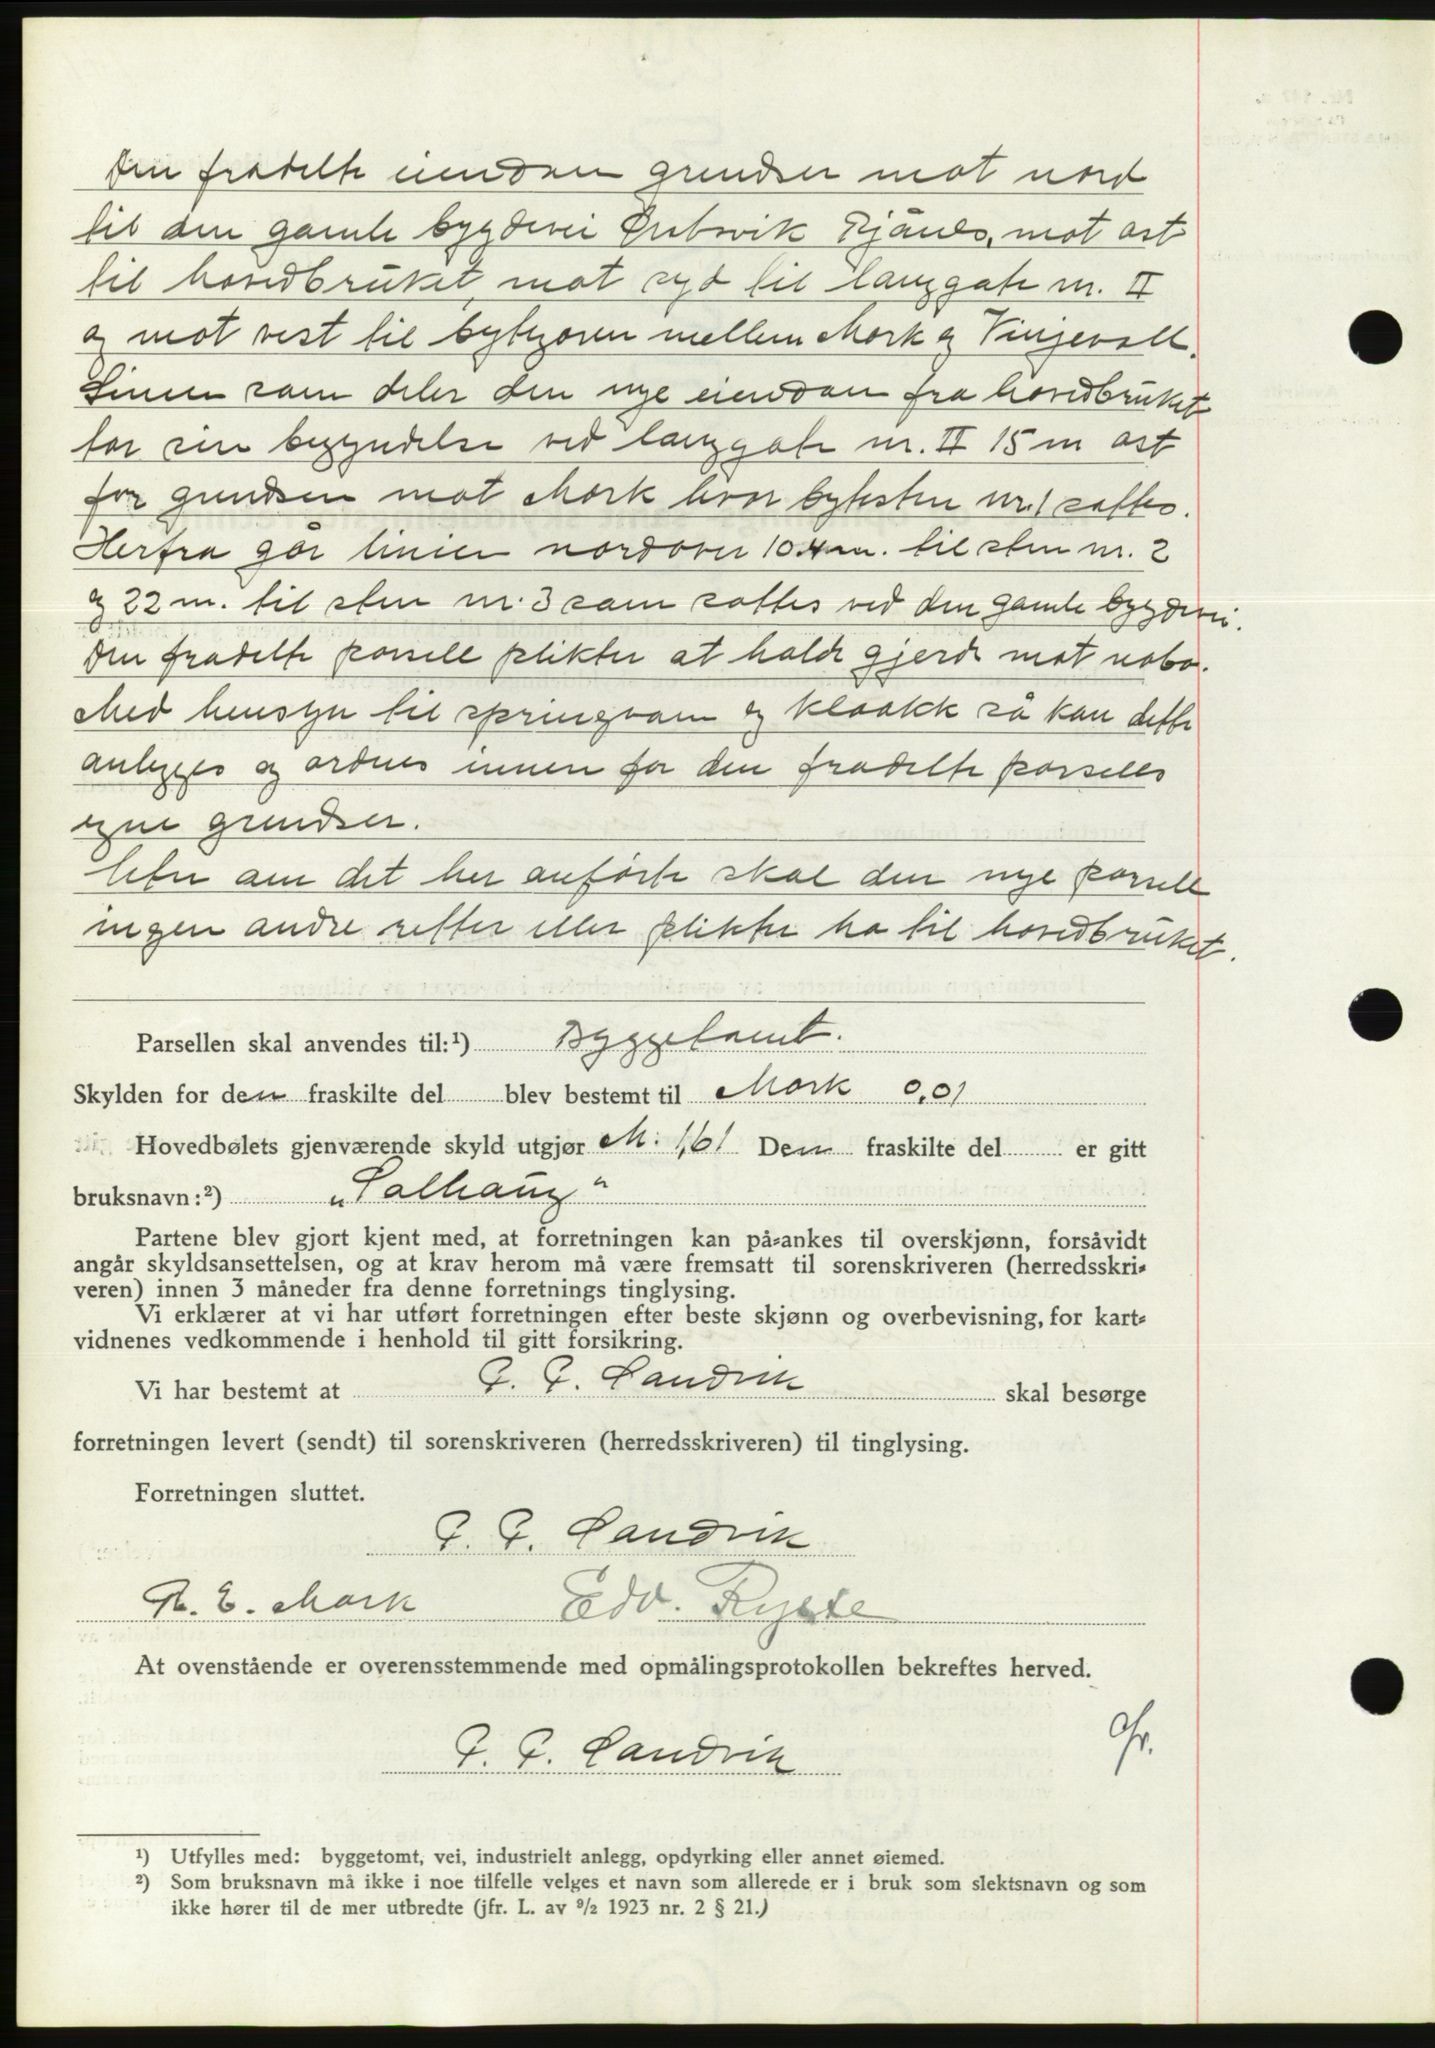 Den fradelte eiendom grendser mot nord
til den gamle bygdevei Ørstavik Rjånes, mot øst
til hovedbruket, mot syd til langgate nr. II
og mot vest til bytegoren mellem Mork og Vinjevoll.
Linien som deler den nye eiendom fra hovedbruket
tar sin begyndelse ved langgate nr. II 15 m øst
for grendsen mot Mork hvor bytesten nr. 1 sattes.
Herfra går linien nordover 10.4 m. til sten nr. 2
og 22 m. til sten nr. 3 som sattes ved den gamle bygdevei.
Den fradelte parsell plikter at holde gjerde mot nabo.
Med hensyn til springvann og kloakk så kan dette
anlegges og ordnes innen for den fradelte parsells
egne grendser.
Uten om det her anførte skal den nye parsell
ingen andre retter eller plikter ha til hovedbruket.
Parsellen skal anvendes til:¹) Byggetomt.
Skylden for den fraskilte del blev bestemt til Mork 0,01
Hovedbølets gjenværende skyld utgjør M. 1,61 Den fraskilte del er gitt
bruksnavn:²) „Solhaug“
Partene blev gjort kjent med, at forretningen kan på-ankes til overskjønn, forsåvidt
angår skyldsansettelsen, og at krav herom må være fremsatt til sorenskriveren (herredsskri-
veren) innen 3 måneder fra denne forretnings tinglysing.
Vi erklærer at vi har utført forretningen efter beste skjønn og overbevisning, for kart-
vidnenes vedkommende i henhold til gitt forsikring.
Vi har bestemt at P. P. Sandvik skal besørge
forretningen levert (sendt) til sorenskriveren (herredsskriveren) til tinglysing.
Forretningen sluttet.
P. P. Sandvik
R. E. Mork Edv. Ryste
At ovenstående er overensstemmende med opmålingsprotokollen bekreftes herved.
P. P. Sandvik
¹) Utfylles med: byggetomt, vei, industrielt anlegg, opdyrking eller annet øiemed.
²) Som bruksnavn må ikke i noe tilfelle velges et navn som allerede er i bruk som slektsnavn og som
ikke hører til de mer utbredte (jfr. L. av 9/2 1923 nr. 2 § 21.)